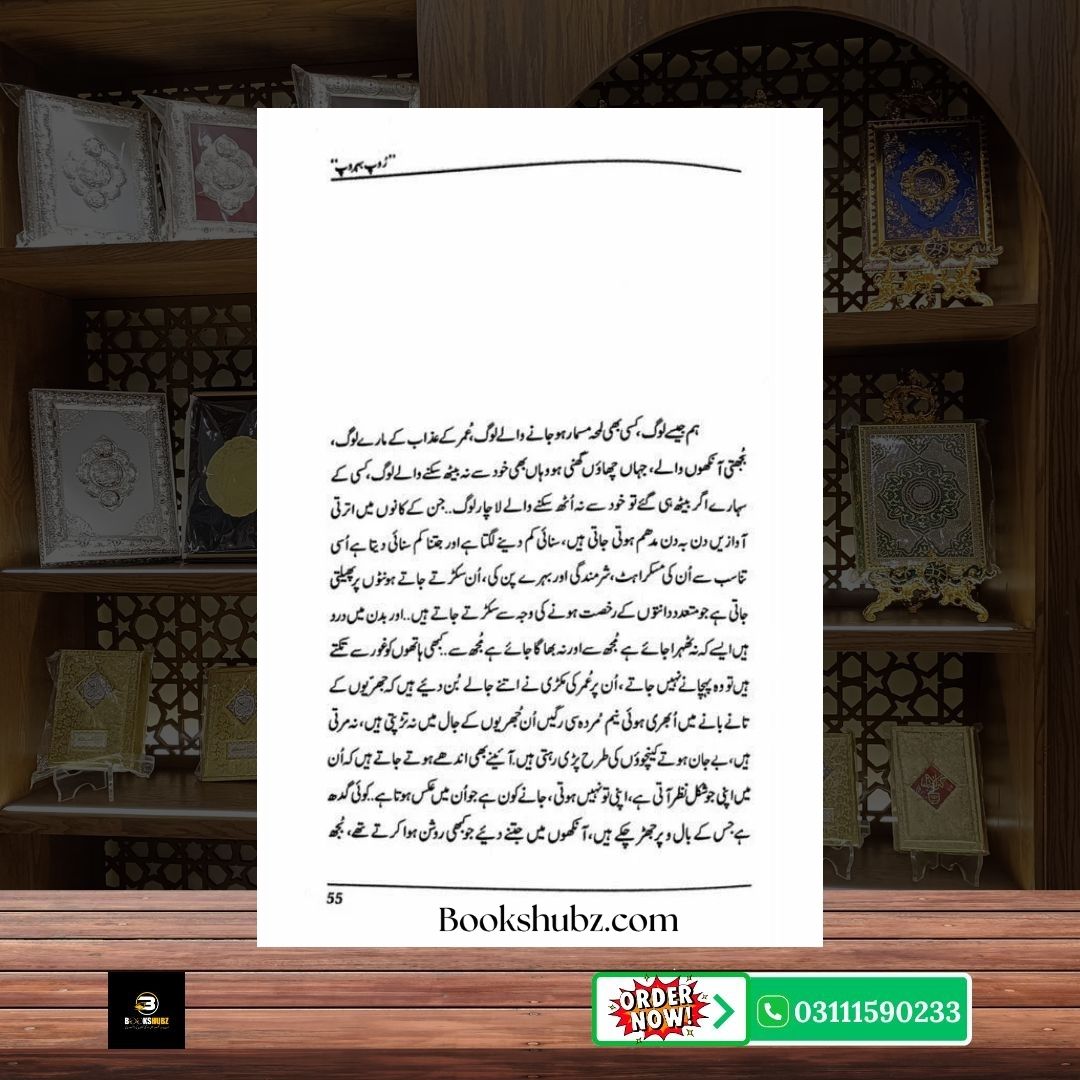 "رُوپ بہروپ"
ہم جیسے لوگ، کسی بھی لمحہ مسمار ہو جانے والے لوگ، عُمر کے عذاب کے مارے لوگ،
بُجھتی آنکھوں والے، جہاں چھاؤں گھنی ہو وہاں بھی خود سے نہ بیٹھ سکنے والے لوگ، کسی کے
سہارے اگر بیٹھ ہی گئے تو خود سے نہ اُٹھ سکنے والے لاچار لوگ.. جن کے کانوں میں اترتی
آوازیں دن بہ دن مدھم ہوتی جاتی ہیں، سنائی کم دینے لگتا ہے اور جتنا کم سنائی دیتا ہے اُسی
تناسب سے اُن کی مسکراہٹ، شرمندگی اور بہرے پن کی، اُن سکڑتے جاتے ہونٹوں پر پھیلتی
جاتی ہے جو متعدد دانتوں کے رخصت ہونے کی وجہ سے سکڑتے جاتے ہیں.. اور بدن میں درد
ہیں ایسے کہ نہ ٹھہرا جائے ہے مُجھ سے اور نہ بھاگا جائے ہے مُجھ سے.. کبھی ہاتھوں کو غور سے تکتے
ہیں تو وہ پہچانے نہیں جاتے، اُن پر عُمر کی مکڑی نے اتنے جالے بُن دیئے ہیں کہ جھریوں کے
تانے بانے میں اُبھری ہوئی نیم مُردہ سی رگیں اُن جُھریوں کے جال میں نہ تڑپتی ہیں، نہ مرتی
ہیں، بے جان ہوتے کینچوؤں کی طرح پڑی رہتی ہیں. آئینے بھی اندھے ہوتے جاتے ہیں کہ اُن
میں اپنی جو شکل نظر آتی ہے، اپنی تو نہیں ہوتی، جانے کون ہے جو اُن میں عکس ہوتا ہے.. کوئی گدھ
ہے جس کے بال و پر جھڑ چکے ہیں، آنکھوں میں جتنے دیئے جو کبھی روشن ہوا کرتے تھے، بُجھ
55
Bookshubz.com
B
BOOKSHUBZ
ORDER
NOW!
03111590233